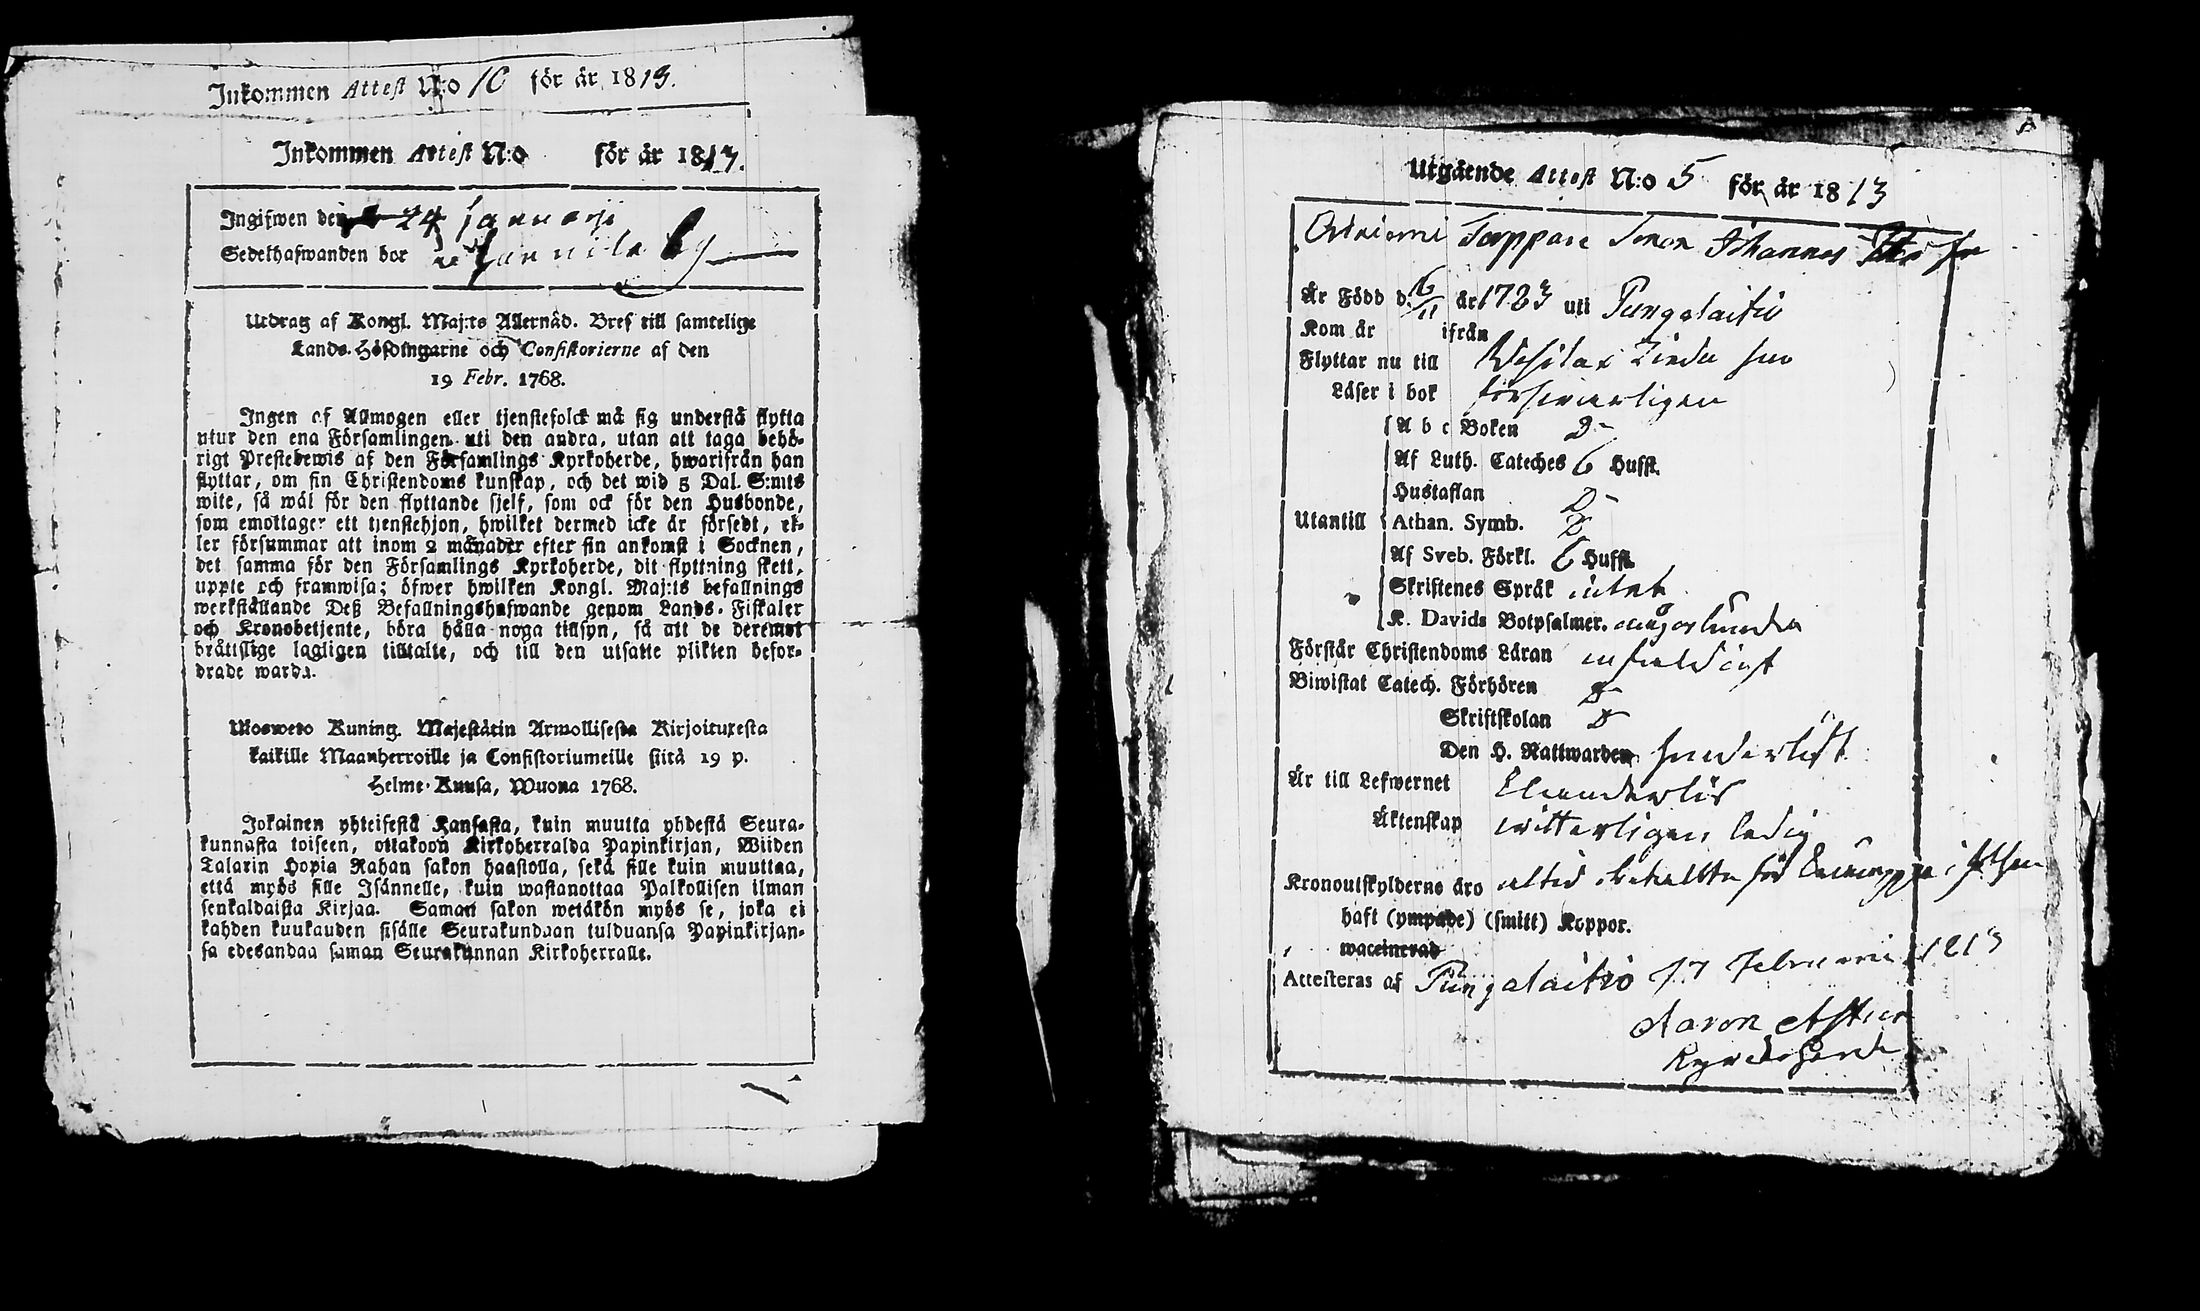 Inkommen Attest N:o 10 för år 1813.
Inkommen Attest N:o för år 1813.
Ingifwen den 24 Januarji
Sedelhafwanden bor by
Utdrag af Kongl. Maj:ts Allernåd. Bref till samtelige
Lands-Höfdingarne och Consistorierne af den
19 Febr. 1768.
Ingen af Allmogen eller tjenstefolck må sig understå flytta
utur den ena Församlingen uti den andra, utan att taga behö-
rigt Prestebewis af den Församlings Kyrkoherde, hwarifrån han
flyttar, om sin Christendoms kunskap, och det wid 5 Dal. S:mts
wite, så wäl för den flyttande sjelf, som ock för den Husbonde,
som emottager ett tjenstehjon, hwilket dermed icke är försedt, el-
ler försummar att inom 2 månader efter sin ankomst i Socknen,
det samma för den Församlings Kyrkoherde, dit flyttning skett,
uppte och framwisa; öfwer hwilken Kongl. Maj:ts befallnings
werkställande Deß Befallningshafwande genom Lands-Fiskaler
och Kronobetjente, böra hålla noga tillsyn, så att de deremot
bråttslige lagligen tilltalte, och till den utsatte plikten befor-
drade warda.
Ulosweto Kuning. Majestätin Armollisesta Kirjoituxesta
kaikille Maanherroille ja Consistoriumeille siitä 19 p.
Helme-Kuusa, Wuona 1768.
Jokainen yhteisestä Kansasta, kuin muutta yhdestä Seura-
kunnasta toiseen, ottakoon Kirkoherralda Papinkirjan, Wiiden
Talarin Hopia Rahan sakon haastolla, sekä sille kuin muuttaa,
että myös sille Isännelle, kuin wastanottaa Palkollisen ilman
senkaldaista Kirjaa. Saman sakon wetäkön myös se, joka ei
kahden kuukauden sisälle Seurakundaan tulduansa Papinkirjan-
sa edesandaa saman Seurakunnan Kirkoherralle.
Utgående Attest N:o 5 för år 1813
Sonen Johannes
Är Född d. 6/11 år 1783 uti Pungalaitio
Kom år ifrån
Flyttar nu till
Läser i bok försvarligen
A b c Boken D-
Af Luth. Cateches 6 Hufst.
Hustaflan D-
Utantill Athan. Symb. D
Af Sveb. Förkl. 6 Hufst.
Skriftenes Språk intet
K. Davids Botpsalmer. någorlunda
Förstår Christendoms Läran enfaldigt
Biwistat Catech. Förhören D-
Skriftskolan D
Den H. Nattwarden
Är till Lefwernet
Äktenskap witterligen ledig
Kronoutskylderne äro altid betallta för i
haft (ympade) (smitt) Koppor.
waccinerad
Attesteras af Pungalaitio 17 Februarii 1813
Aaron
Kyrckoherde